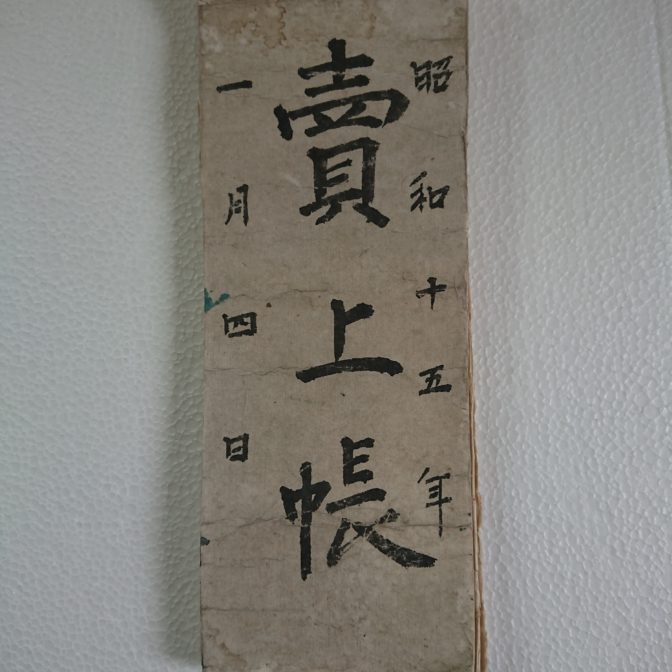 昭和十五年
賣上帳
一月四日